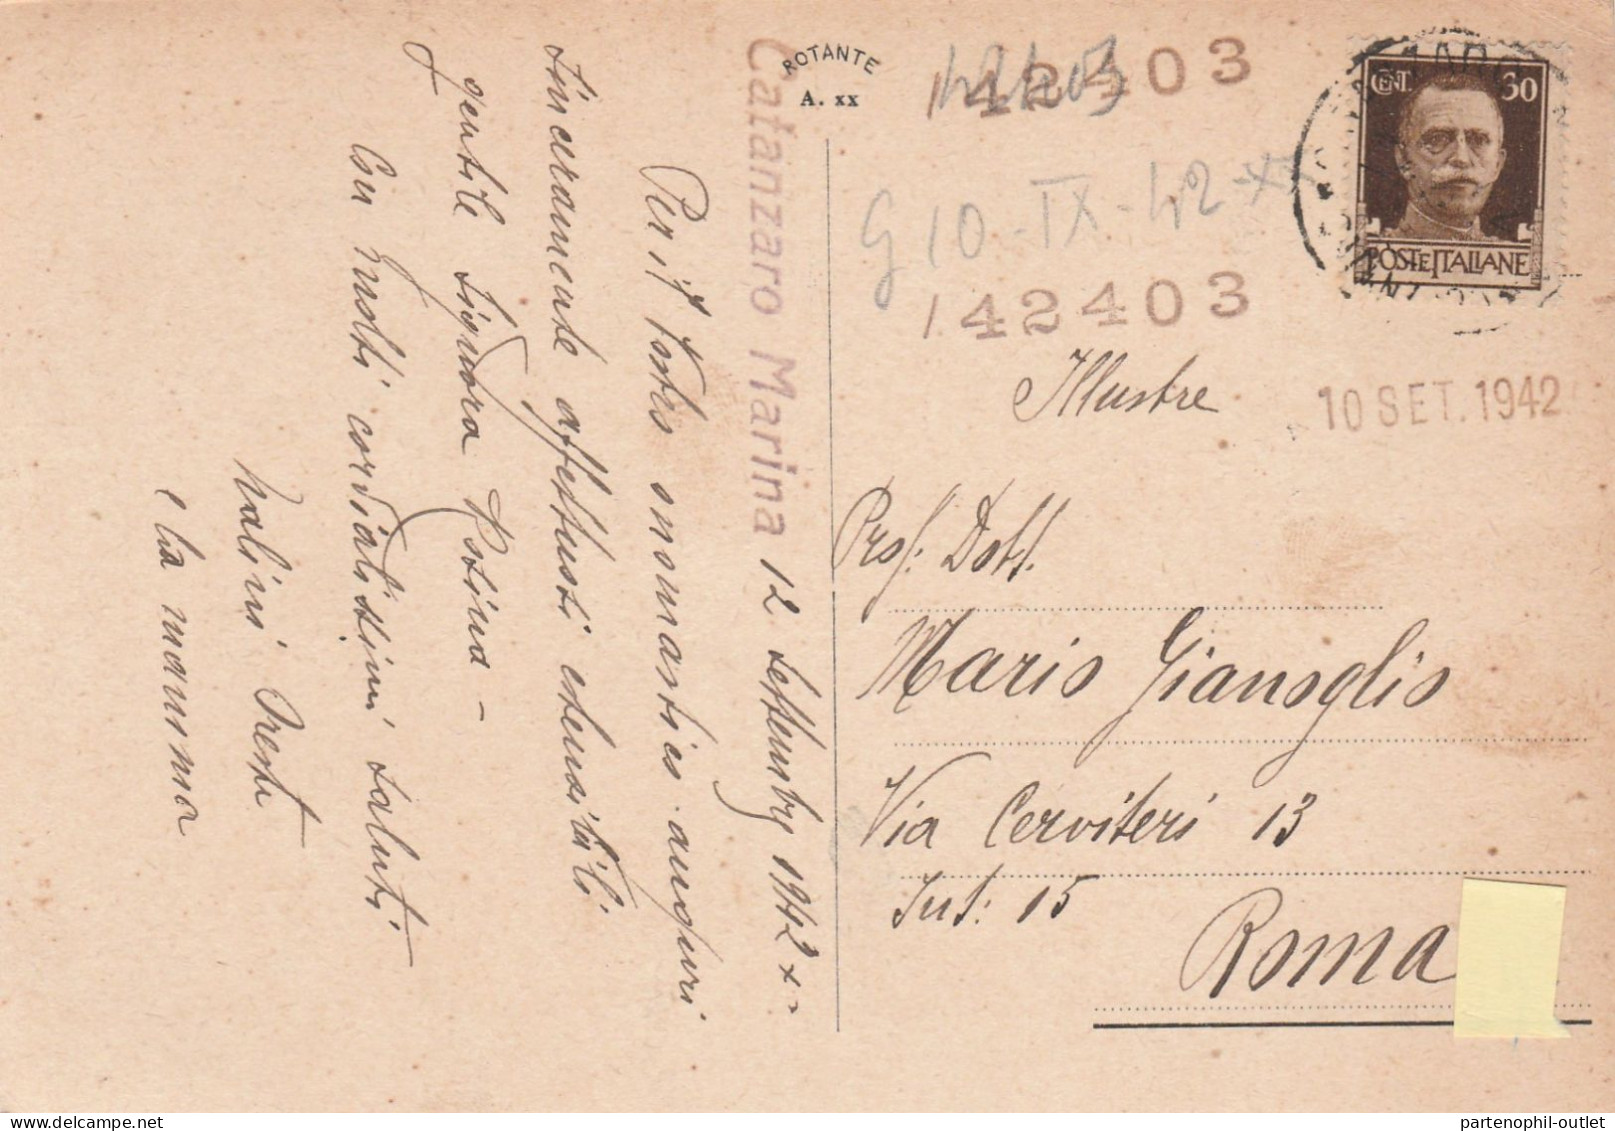 Catanzaro Marina 12 Settembre 1942 x-
Per il Vostro onomastico auguri
sinceramente affettuosi estensibili
gentile Signora Rosina -
Con molti cordialissimi saluti.
e la mamma
ROTANTE
A. XX
142403
42403
G 10-IX-42-XX
142403
CENT. 30
POSTE ITALIANE
10 SET. 1942
Illustre
Prof. Dott.
Mario Gianoglio
Via Cerviteri 13
Int: 15
Roma
partenophil-outlet